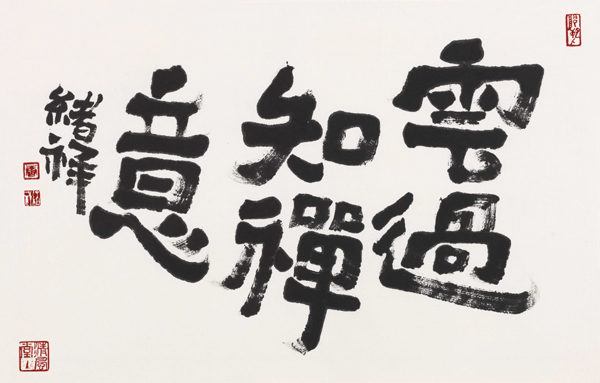 雲過
知禪
意
緒祥